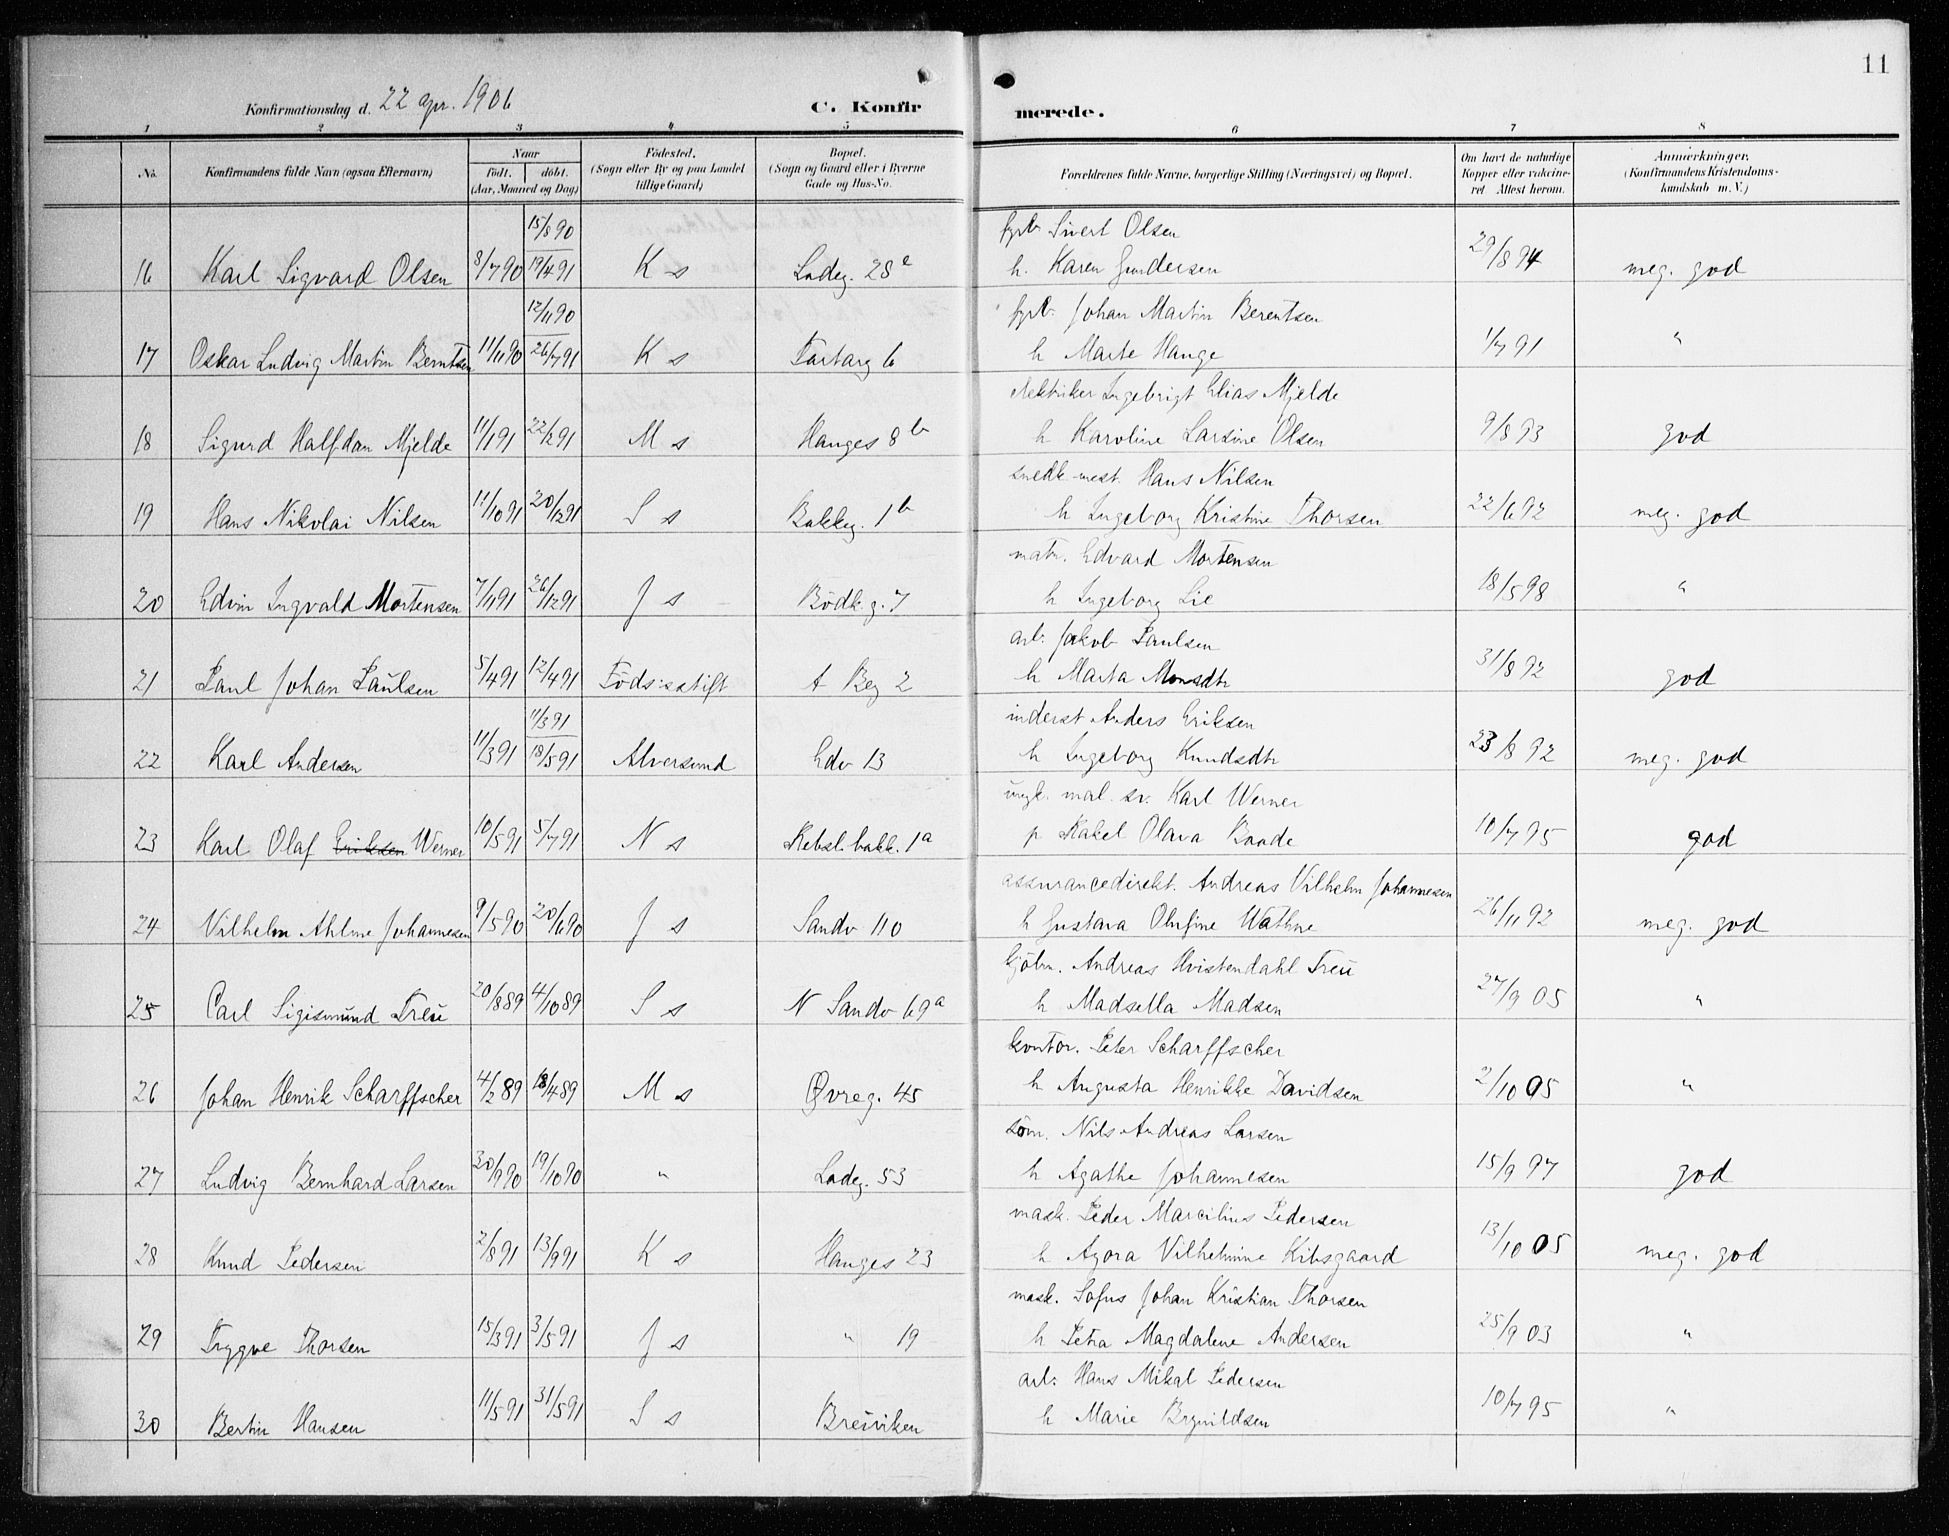 11
Konfirmationsdag d. 22 apr. 1906 C. Konfirmerede.
1 2 3 4 5 6 7 8
No. Konfirmandens fulde Navn (ogsaa Efternavn) Naar født. døbt. (Aar, Maaned og Dag) Fødested. (Sogn eller By og paa Landet tillige Gaard) Bopæl. (Sogn og Gaard eller i Byerne Gade og Hus-No. Forældrenes fulde Navne, borgerlige Stilling (Næringsvei) og Bopæl. Om havt de naturlige Kopper eller vaccineret Attest herom. Anmærkninger. (Konfirmandens Kristendomskundskab m. V.)
15/8 90 fyrb. Sivert Olsen
16 Karl Sigvard Olsen 8/7 90 19/4 91 K s Ladeg. 28 e h. Karen Gundersen 29/8 94 meg. god
12/11 90 fyrb. Johan Martin Berentsen
17 Oskar Ludvig Martin Berntsen 11/11 90 26/7 91 K s Tartarg 6 h Marte Hauge 1/7 91 "
elektriker Ingebrigt Elias Mjelde
18 Sigurd Halfdan Mjelde 11/1 91 22/2 91 M s Hauges 8 b h Karoline Larsine Olsen 9/8 93 god
snedk mest. Hans Nilsen
19 Hans Nikolai Nilsen 11/10 91 20/12 91 S s Bakkeg. 1 b h Ingeborg Kristine Thorsen 22/6 92 meg. god
matr. Edvard Mortensen
20 Edvin Ingvald Mortensen 7/11 91 26/12 91 J s Bödk.g. 7 h Ingeborg Lie 18/5 98 "
arb. Jakob Paulsen
21 Paul Johan Paulsen 5/4 91 12/4 91 Föds:stift A Beg 2 h Marta Monsdtr 31/8 92 god
11/3 91 inderst Anders Eriksen
22 Karl Andersen 11/3 91 18/5 91 Alversund Edv 13 h Ingeborg Knudsdtr 23/8 92 meg. god
ungk. mal. sv. Karl Werner
23 Karl Olaf Eriksen Werner 10/5 91 5/7 91 N s Rebsl.bakk. 1 a p Rakel Olava Baade 10/7 95 god
assurancedirekt. Andreas Vilhelm Johannesen
24 Vilhelm Ahlme Johannesen 9/5 90 20/6 90 J s Sandv 110 h Gustava Olufine Wathne 26/11 92 meg. god
kjöbm. Andreas Hvistendahl Treu
25 Carl Sigismund Treu 20/8 89 4/10 89 S s N Sandv 69 a h Madsella Madsen 27/9 05 "
kontor. Peter Scharffscher
26 Johan Henrik Scharffscher 4/2 89 18/4 89 M s Øvreg. 45 h Augusta Henrikke Davidsen 2/10 05 "
söm. Nils Andreas Larsen
27 Ludvig Bernhard Larsen 30/9 90 19/10 90 " Ladeg. 53 h Agathe Johannesen 15/9 97 god
mask. Peder Marcilius Pedersen
28 Knud Pedersen 2/8 91 13/9 91 K s Hauges 23 h Agora Vilhelmine Kibsgaard 13/10 05 meg. god
mask. Sofus Johan Kristian Thorsen
29 Trygve Thorsen 15/3 91 3/5 91 J s " 19 h Petra Magdalene Andersen 25/9 03 "
arb. Hans Mikal Pedersen
30 Bertin Hansen 11/5 91 31/5 91 S s Breiviken h Marie Brynildsen 10/7 95 "